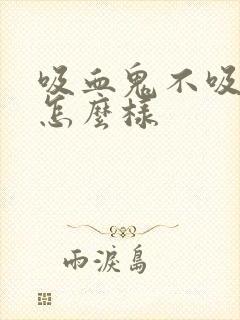 吸血鬼不吸
怎麼樣
雨淚島